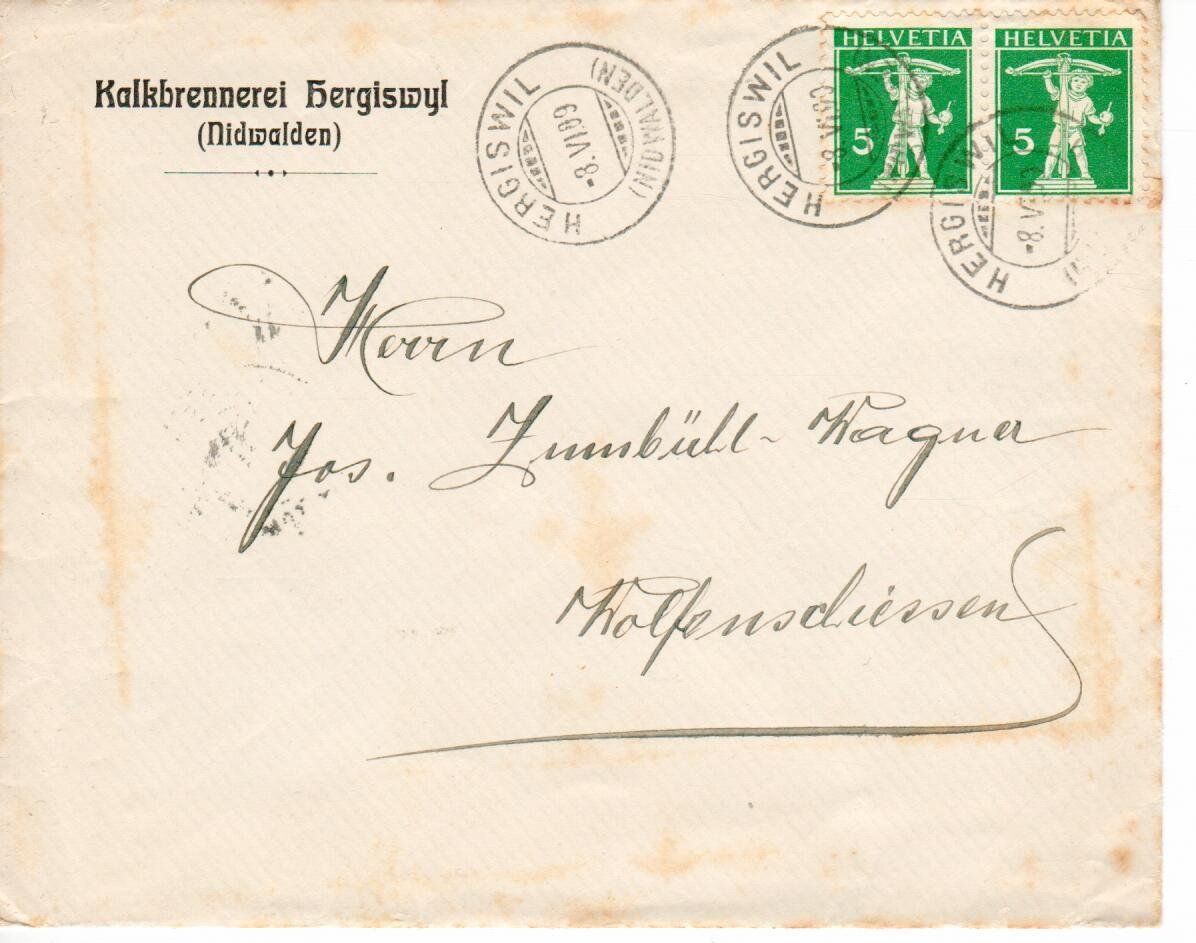 Kalkbrennerei Hergiswyl
(Nidwalden)
HERGISWIL
(NIDWALDEN)
-8.VI.09
HERGISWIL
-8.VI.09
HERGISWIL
-8.VI.09
HELVETIA
5
HELVETIA
5
Herrn
Jos. Zumbühl-Wagner
Wolfenschiessen